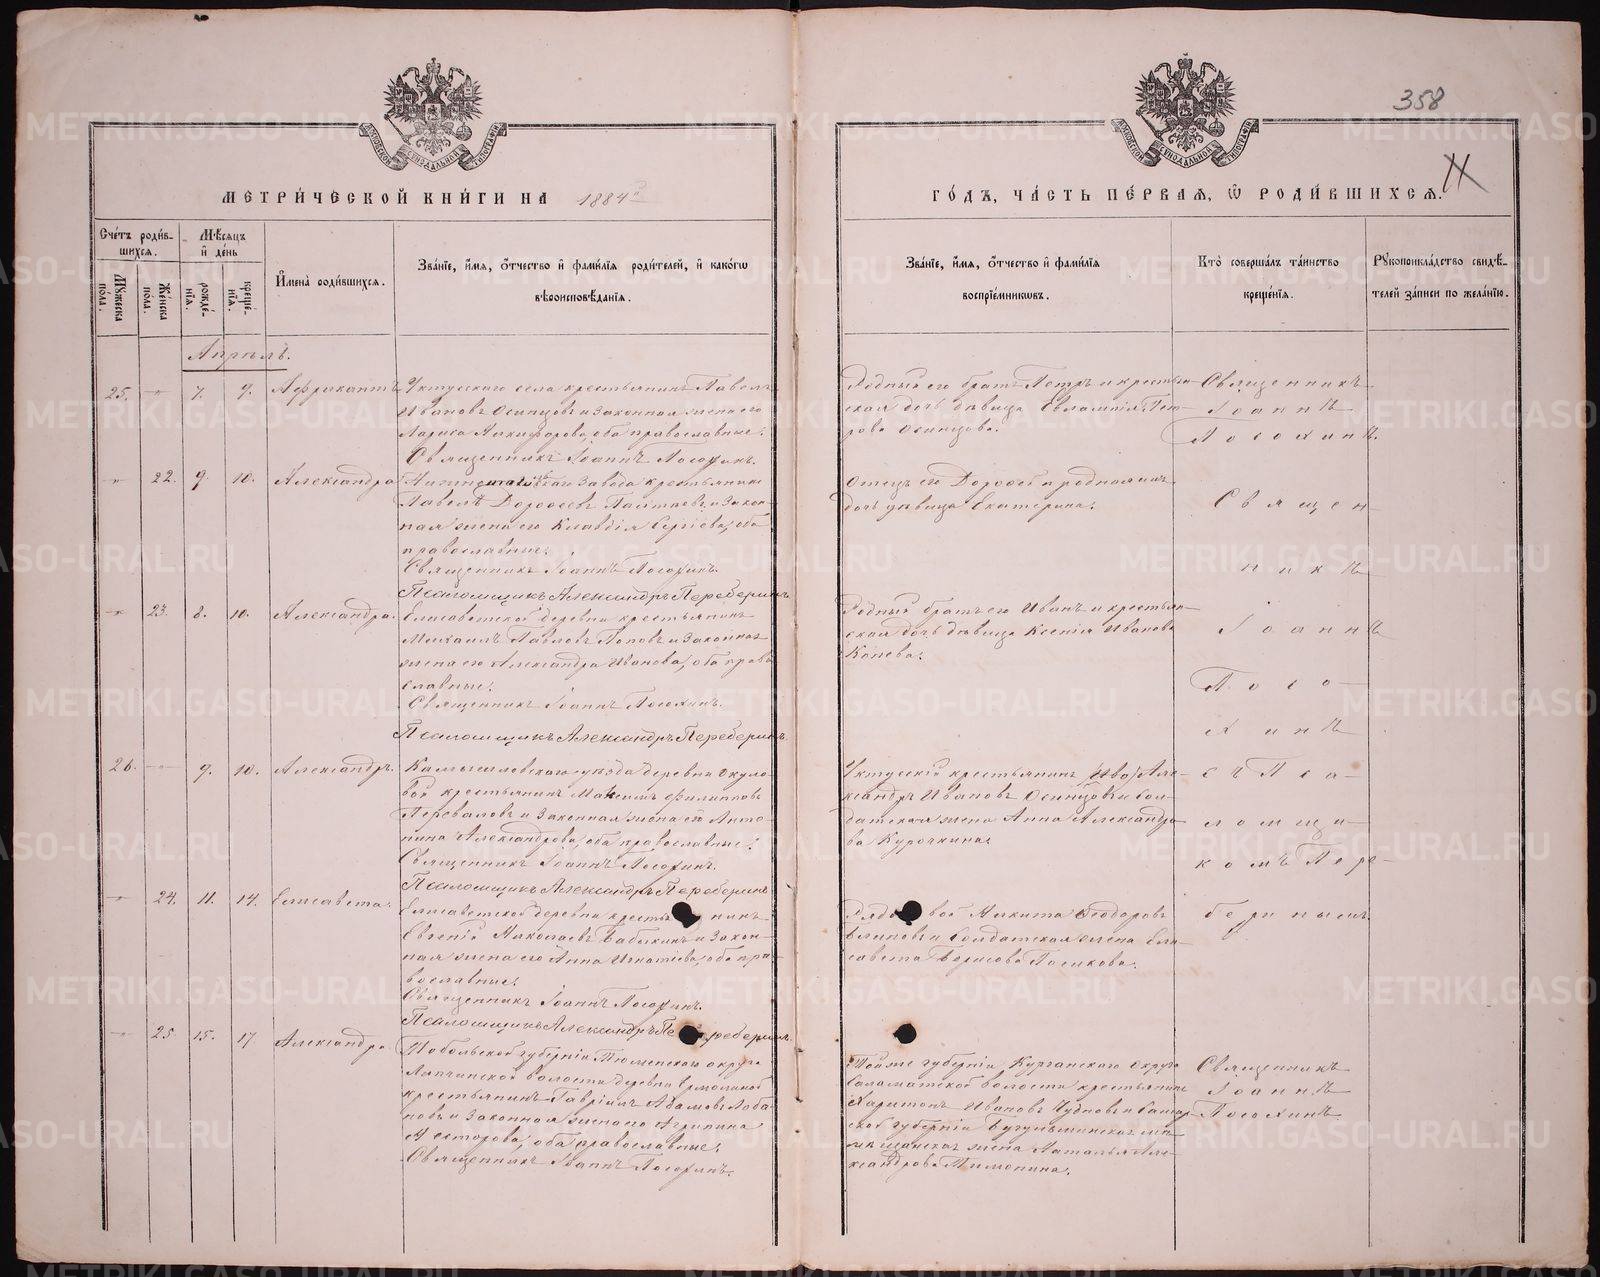 358
11
МОСКОВСКОЙ СѴНОДАЛЬНОЙ ТИПОГРАФІИ
МОСКОВСКОЙ СѴНОДАЛЬНОЙ ТИПОГРАФІИ
МЕТРИ́ЧЕСКОЙ КНИ́ГИ НА 1884й
ГО́ДЪ, ЧА́СТЬ ПЕ́РВАѦ, Ѡ РОДИ́ВШИХСѦ.
Сче́тъ роди́в-
шихсѧ.
Мꙋ́жеска по́ла.
Же́нска по́ла.
Мѣ́сѧцъ и҆ де́нь
рожде́-нїѧ.
креще́-нїѧ.
И҆мена̀ роди́вшихсѧ.
Зва́нїе, и҆́мѧ, ѻ҆́тчество и҆ фами́лїѧ роди́телей, и҆ како́гѡ
вѣроисповѣ́данїѧ.
Зва́нїе, и҆́мѧ, ѻ҆́тчество и҆ фами́лїѧ
воспрїе́мникѡвъ.
Кто̀ соверша́лъ та́инство
креще́нїѧ.
Рꙋкоприкла́дство свидѣ́-
телей за́писи по жела́нїю.
Апрѣль.
25. 7. 9. Африкантъ
Уктусскаго села крестьянинъ Павелъ
Ивановъ Осинцовъ и законная жена его
Лариса Никифорова, оба православные.
Священникъ Іоаннъ Посохинъ.
Родный его братъ Петръ и крестьян-
ская дочь дѣвица Евлампія Пет-
рова Осинцова.
Священникъ
Іоаннъ
Посохинъ.
22. 9. 10. Александра
завода крестьянинъ
Павелъ Дороѳеевъ и закон-
ная жена его Клавдія Сергіева, оба
православные.
Священникъ Іоаннъ Посохинъ.
Псаломщикъ Александръ Переберинъ
Отецъ его Дороѳей и родная ихъ
дочь дѣвица Екатерина.
Священ-
никъ
23. 8. 10. Александра.
Елисаветской деревни крестьянинъ
Михаилъ Павловъ Поповъ и законная
жена его Александра Иванова, оба право-
славные.
Священникъ Іоаннъ Посохинъ.
Псаломщикъ Александръ Переберинъ.
Родный братъ его Иванъ и крестьян-
ская дочь дѣвица Ксенія Иванова
Конева.
Іоаннъ
Посо-
хинъ
26. 9. 10. Александръ.
Камышловскаго уѣзда деревни Окуло-
вой крестьянинъ Максимъ Филипповъ
Переваловъ и законная жена его Анто-
нина Александрова, оба православные.
Священникъ Іоаннъ Посохинъ.
Псаломщикъ Александръ Переберинъ
Уктусскій крестьянинъ (Иво) Але-
ксандръ Ивановъ Осинцовъ и сол-
датская жена Анна Александро-
ва Курочкина.
съ Пса-
ломщи-
комъ Пере-
24. 11. 14. Елисавета.
Елисаветской деревни крестьянинъ
Евгеній Николаевъ Бабыкинъ и закон-
ная жена его Анна Игнатіева, оба пра-
вославные.
Священникъ Іоаннъ Посохинъ.
Псаломщикъ Александръ Переберинъ.
Рядовой Никита Ѳеодоровъ
и солдатская жена Ели-
савета Борисова
беринымъ
25. 15. 17. Александра
Тобольской губерніи Тюменскаго округа
Липчинской волости деревни Ермолиной
крестьянинъ Гавріилъ Адамовъ Лоба-
новъ и законная жена его Агрипина
Нестерова, оба православные.
Священникъ Іоаннъ Посохинъ.
Тойже губерніи, Курганскаго округа
Саламатской волости крестьянинъ
Харитонъ Ивановъ Чудновъ и Самар-
ской губерніи Бугульминская мѣ-
щанская жена Наталья Але-
ксандрова Тимонина.
Священникъ
Іоаннъ
Посохинъ
METRIKI.GASO-URAL.RU